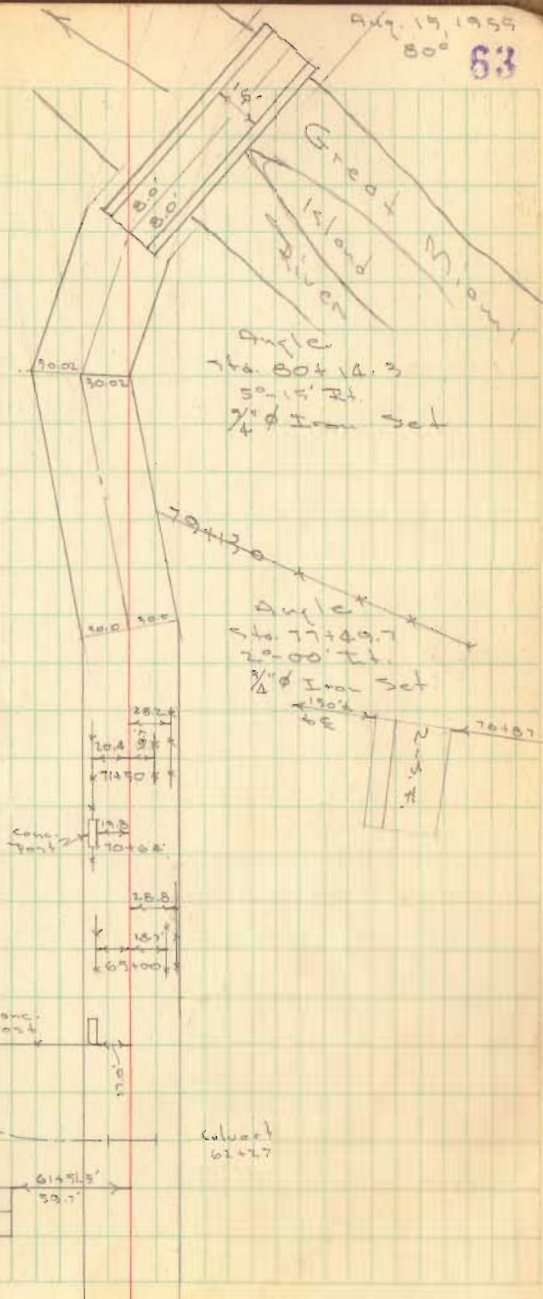 Aug. 15, 1955
80°
63
18'
8.0'
8.0'
Great Miami
Island
River
Angle
Sta. 80+14.3
5°-15' Rt.
3/4" ø Iron Set
30.02
30.02
79+30
Angle
Sta. 77+49.7
2°-00' Lt.
3/4" ø Iron Set
30.0
30.0
150'±
76+87
28.2
20.4
71+50
Conc.
Post
19.8
70+68
28.8
18.7
65+00
Conc.
Post
17.0'
Culvert
62+27
61+51.5'
59.7'